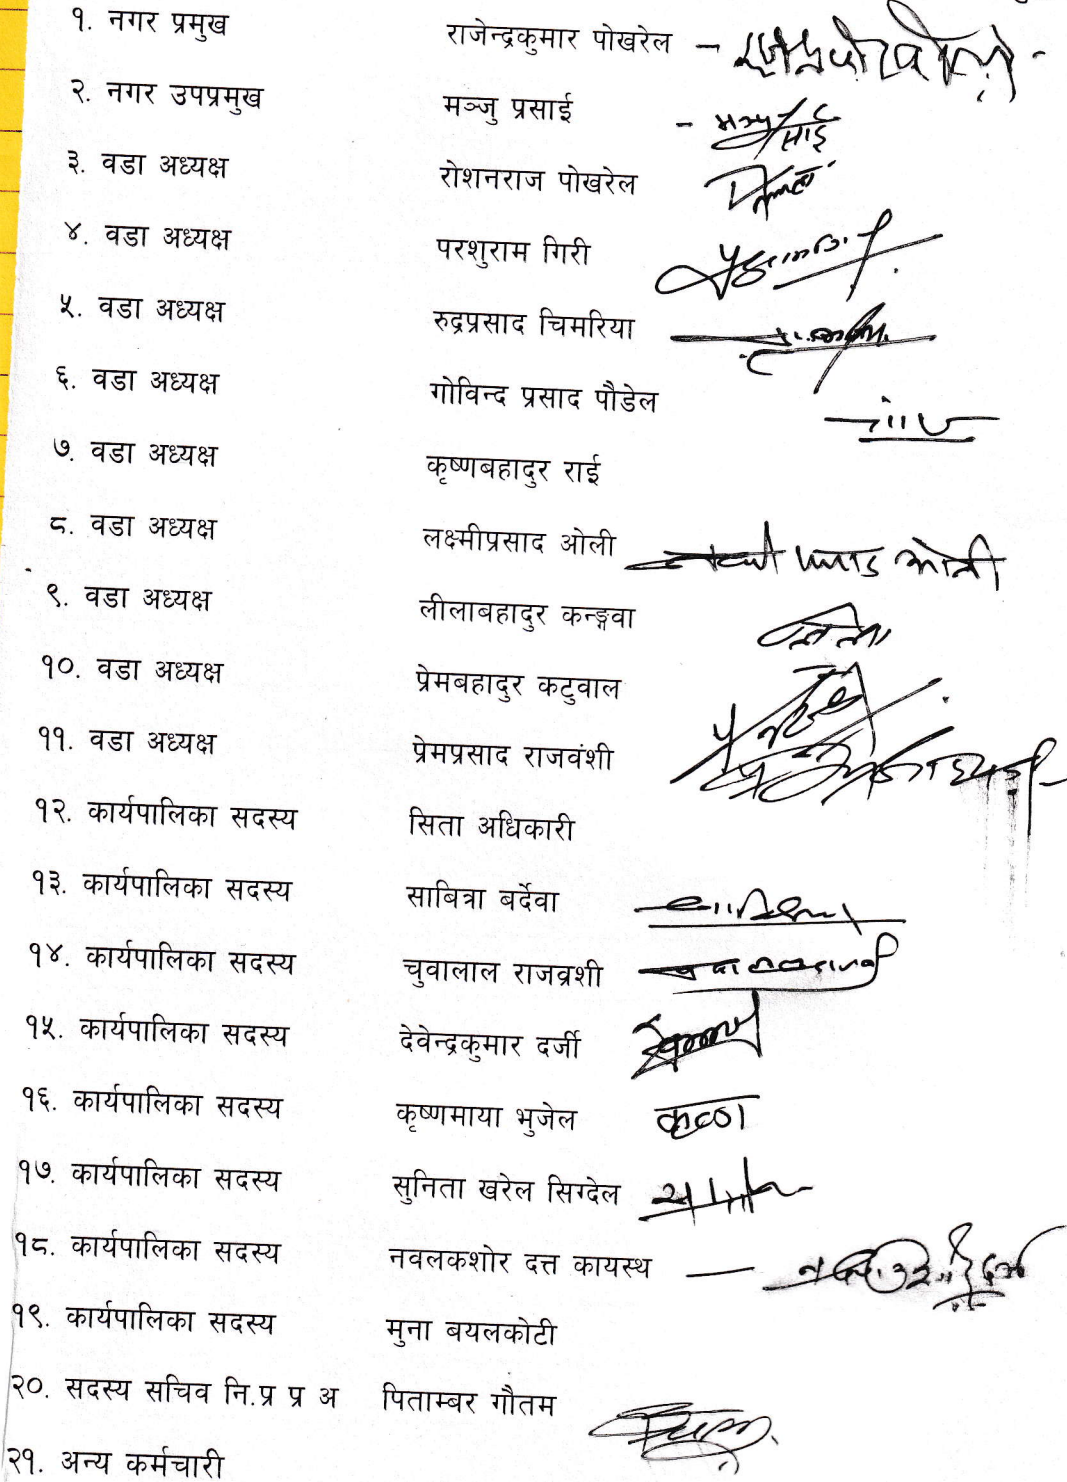 १. नगर प्रमुख राजेन्द्रकुमार पोखरेल –
२. नगर उपप्रमुख मञ्जु प्रसाई -
३. वडा अध्यक्ष रोशनराज पोखरेल
४. वडा अध्यक्ष परशुराम गिरी
५. वडा अध्यक्ष रुद्रप्रसाद चिमरिया
६. वडा अध्यक्ष गोविन्द प्रसाद पौडेल
७. वडा अध्यक्ष कृष्णबहादुर राई
८. वडा अध्यक्ष लक्ष्मीप्रसाद ओली
९. वडा अध्यक्ष लीलाबहादुर कन्ङ्गवा
१०. वडा अध्यक्ष प्रेमबहादुर कटुवाल
११. वडा अध्यक्ष प्रेमप्रसाद राजवंशी
१२. कार्यपालिका सदस्य सिता अधिकारी
१३. कार्यपालिका सदस्य साबित्रा बर्देवा
१४. कार्यपालिका सदस्य चुवालाल राजव्रशी
१५. कार्यपालिका सदस्य देवेन्द्रकुमार दर्जी
१६. कार्यपालिका सदस्य कृष्णमाया भुजेल
१७. कार्यपालिका सदस्य सुनिता खरेल सिग्देल
१८. कार्यपालिका सदस्य नवलकशोर दत्त कायस्थ —
१९. कार्यपालिका सदस्य मुना बयलकोटी
२०. सदस्य सचिव नि.प्र प्र अ पिताम्बर गौतम
२१. अन्य कर्मचारी